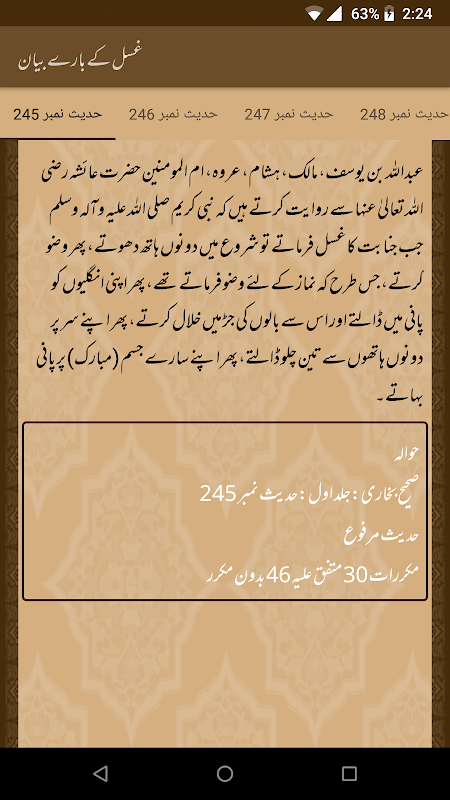 63% 2:24
غسل کے بارے بیان
حدیث نمبر 245 حدیث نمبر 246 حدیث نمبر 247 حدیث نمبر 248
عبداللہ بن یوسف، مالک، ہشام، عروہ، ام المومنین حضرت عائشہ رضی
اللہ تعالیٰ عنہا سے روایت کرتے ہیں کہ نبی کریم صلی اللہ علیہ وآلہ وسلم
جب جنابت کا غسل فرماتے تو شروع میں دونوں ہاتھ دھوتے، پھر وضو
کرتے، جس طرح کہ نماز کے لئے وضو فرماتے تھے، پھر اپنی انگلیوں کو
پانی میں ڈالتے اور اس سے بالوں کی جڑ میں خلال کرتے، پھر اپنے سر پر
دونوں ہاتھوں سے تین چلو ڈالتے، پھر اپنے سارے جسم (مبارک) پر پانی
بہاتے۔
حوالہ
صحیح بخاری: جلد اول: حدیث نمبر 245
حدیث مرفوع
مکررات 30 متفق علیہ 46 بدون مکرر